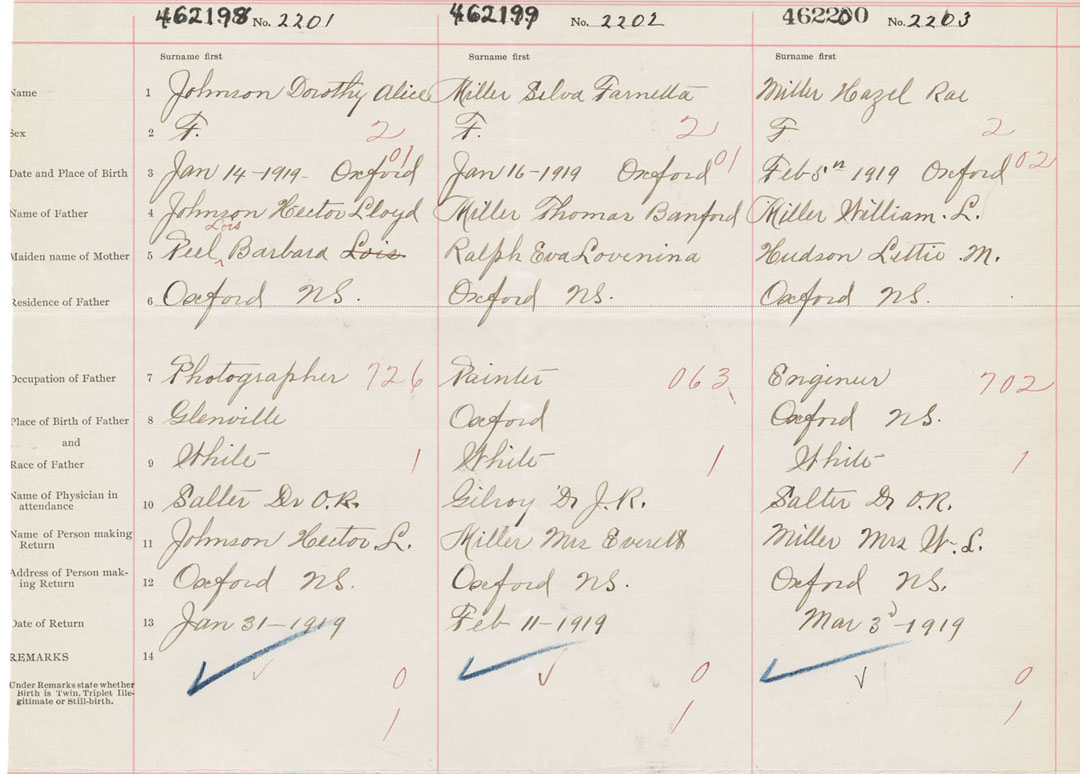 462198 No. 2201 462199 No. 2202 462200 No. 2203
Surname first Surname first Surname first
Name 1 Johnson Dorothy Alice Miller Silva Farnetta Miller Hazel Rae
Sex 2 F. 2 F. 2 F 2
Date and Place of Birth 3 Jan 14-1919- Oxford 01 Jan 16-1919 Oxford 01 Feb 5th 1919 Oxford 02
Name of Father 4 Johnson Hector Lloyd Miller Thomas Banford Miller William. L.
Lois
Maiden name of Mother 5 Peel Barbara Lois Ralph Eva Lovenina Hudson Lettie M.
Residence of Father 6 Oxford NS. Oxford NS. Oxford NS.
Occupation of Father 7 Photographer 726 Painter 063 Engineer 702
Place of Birth of Father 8 Glenville Oxford Oxford NS.
and
Race of Father 9 White 1 White 1 White 1
Name of Physician in
attendance 10 Salter Dr O.R. Gilroy Dr J.R. Salter Dr O.R.
Name of Person making
Return 11 Johnson Hector. L. Miller Mrs Everett Miller Mrs W. L.
Address of Person mak-
ing Return 12 Oxford NS. Oxford NS. Oxford NS.
Date of Return 13 Jan 31-1919 Feb 11-1919 Mar 3d-1919
REMARKS 14
Under Remarks state whether 0 0 0
Birth is Twin, Triplet Ille-
gitimate or Still-birth.
1 1 1